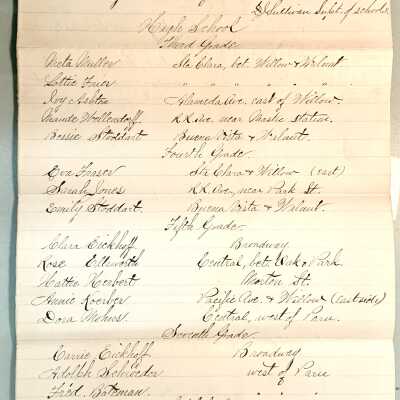 D Sullivan Supt. of schools
High School
Third Grade
Meta Muller Sta Clara, bet. Willow & Walnut
Lottie " " " " "
Roy Alameda Ave. east of Willow.
Minnie Wollendorff R.R. Ave. near Mastic station.
Bessie Stoddart Buena Vista & Walnut.
Fourth Grade.
Eva Fraser Sta Clara & Willow (east)
Sarah Jones R.R. Ave, near Park St.
Emily Stoddart. Buena Vista & Walnut.
Fifth Grade.
Clara Eickhoff Broadway
Rose Ellsworth Central, bet. Oak & Park.
Hattie Herbert Morton St.
Annie Koerber Pacific Ave. & Willow (east side)
Dora Central, west of Paru.
Seventh Grade.
Carrie Eickhoff. Broadway
Adolph Schroeder west of Paru
Fred. Bateman.